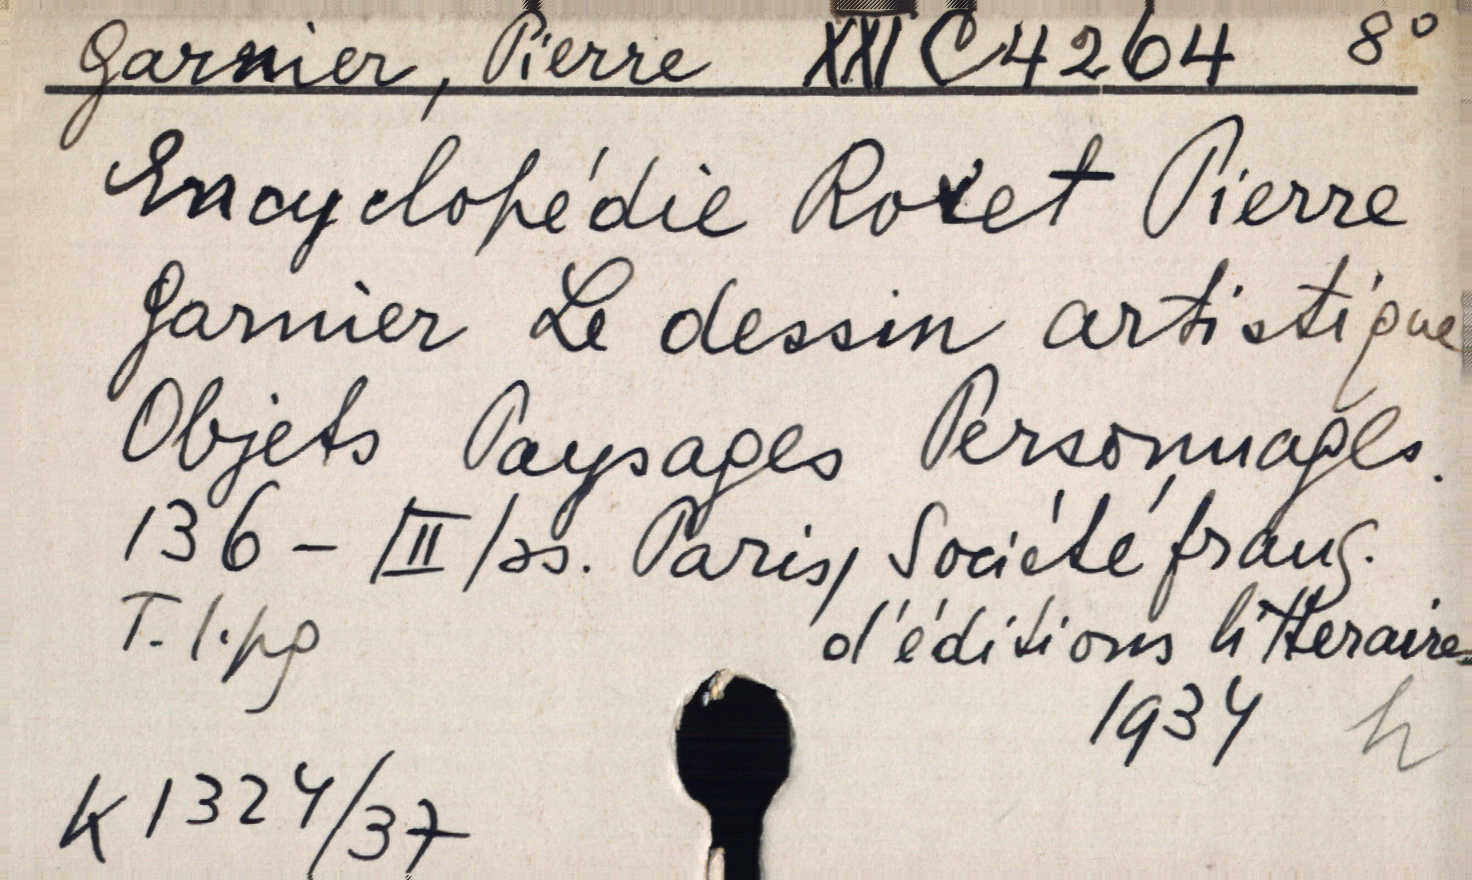 Garnier, Pierre XXI C 4264 8°
Encyclopédie Roret Pierre
Garnier Le dessin artistique
Objets Paysages Personnages.
136 - III/ss. Paris, Société franç.
T. l. pg d'éditions litteraires
1934 h
K 1324/37